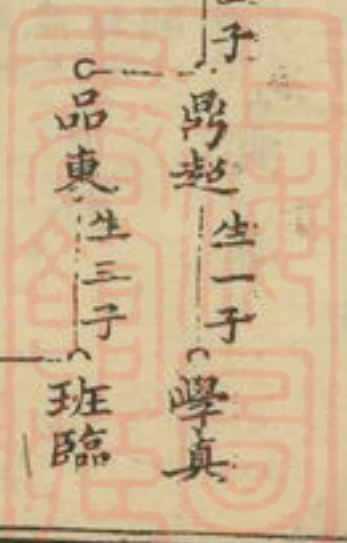 子
鼎超
生一子
學真
品東
生三子
班臨